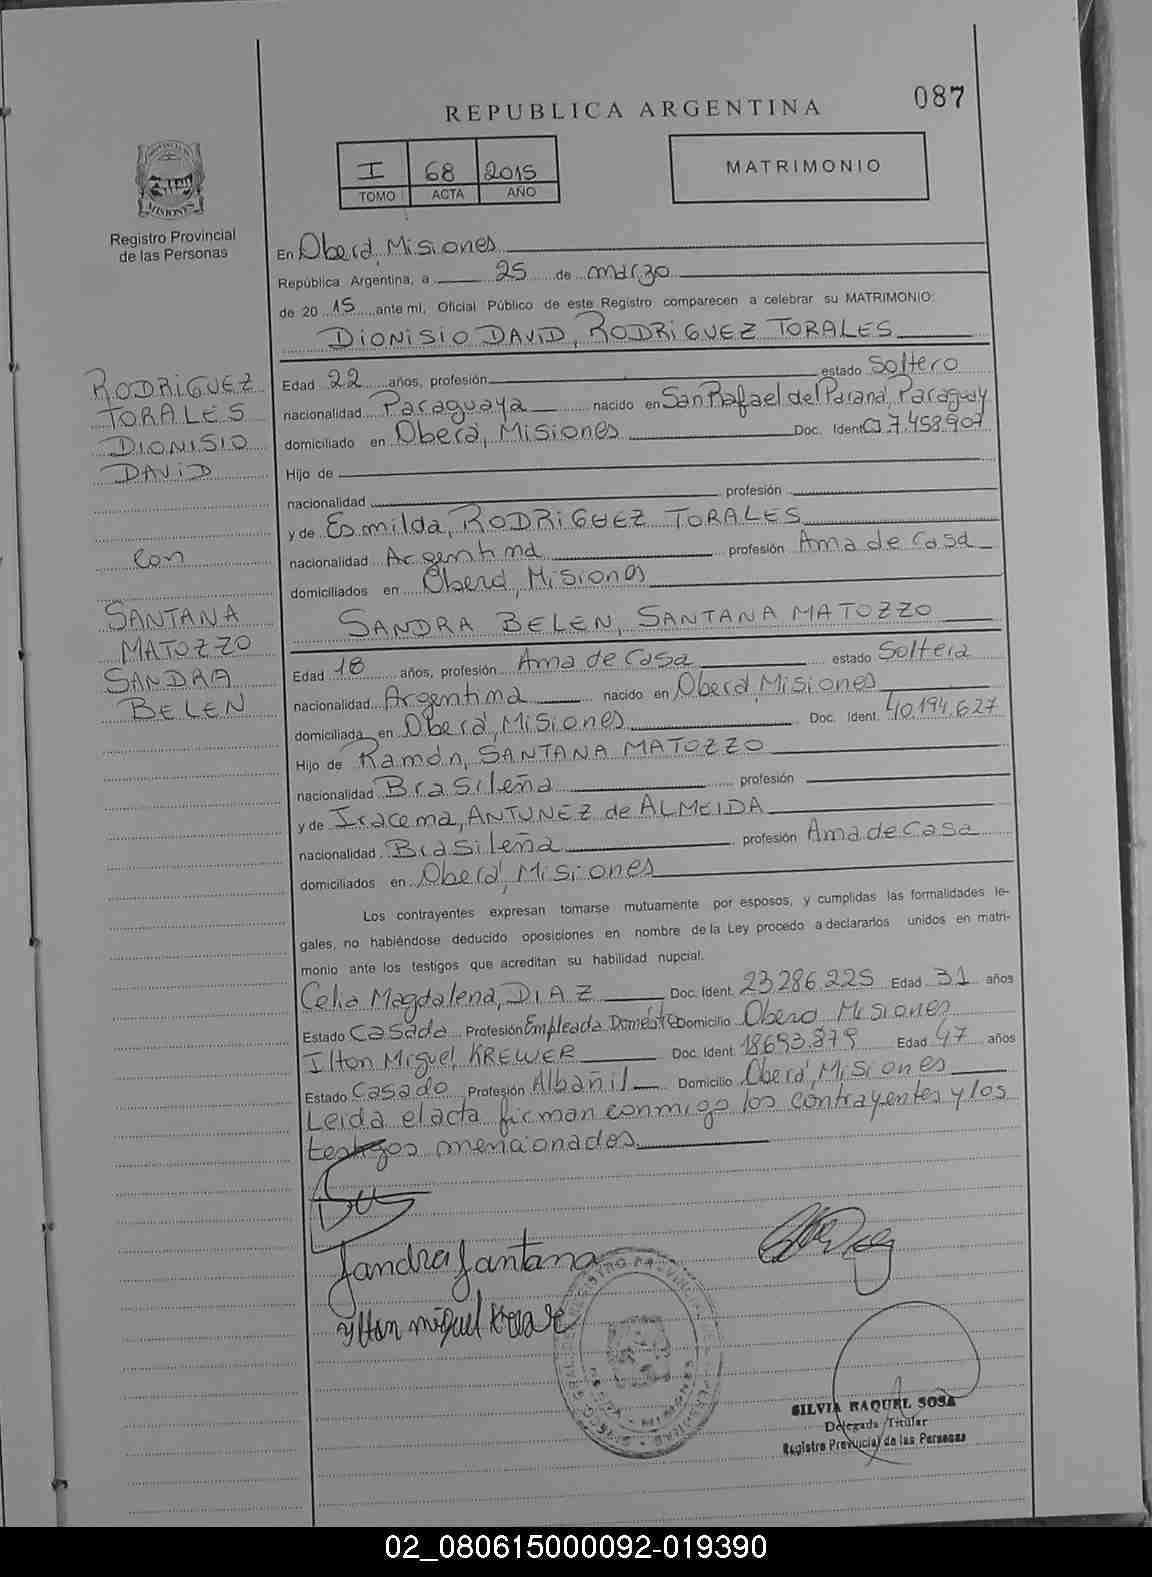 087
REPUBLICA ARGENTINA
I 68 2015
TOMO ACTA AÑO
MATRIMONIO
MISIONES
Registro Provincial
de las Personas
En Oberá, Misiones
República Argentina, a 25 de marzo
de 20 15 ante mi, Oficial Público de este Registro comparecen a celebrar su MATRIMONIO:
DIONISIO DAVID, RODRIGUEZ TORALES
RODRIGUEZ
TORALES
DIONISIO
DAVID
con
SANTANA
MATOZZO
SANDRA
BELEN
Edad 22 años, profesión estado Soltero
nacionalidad Paraguaya nacido en San Rafael del Paraná, Paraguay
domiciliado en Oberá, Misiones Doc. Ident. CI 7.458.907
Hijo de
nacionalidad profesión
y de Esmilda, RODRIGUEZ TORALES
nacionalidad Argentina profesión Ama de Casa
domiciliados en Oberá, Misiones
SANDRA BELEN, SANTANA MATOZZO
Edad 18 años, profesión Ama de Casa estado Soltera
nacionalidad Argentina nacido en Oberá, Misiones
domiciliada en Oberá, Misiones Doc. Ident. 40.194.627
Hijo de Ramón, SANTANA MATOZZO
nacionalidad Brasileña profesión
y de Iracema, ANTUNEZ de ALMEIDA
nacionalidad Brasileña profesión Ama de Casa
domiciliados en Oberá, Misiones
Los contrayentes expresan tomarse mutuamente por esposos, y cumplidas las formalidades le-
gales, no habiéndose deducido oposiciones en nombre de la Ley procedo a declararlos unidos en matri-
monio ante los testigos que acreditan su habilidad nupcial.
Celia Magdalena, DIAZ Doc. Ident. 23.286.225 Edad 31 años
Estado Casada Profesión Empleada Doméstic Domicilio Oberá Misiones
Ilton Miguel, KREWER Doc. Ident. 18.693.879 Edad 47 años
Estado Casado Profesión Albañil Domicilio Oberá, Misiones
Leída el acta firman conmigo los contrayentes y los
testigos mencionados
Sandra Santana
Ylton miguel
SILVIA RAQUEL SOSA
Delegada Titular
Registro Provincial de las Personas
02_080615000092-019390